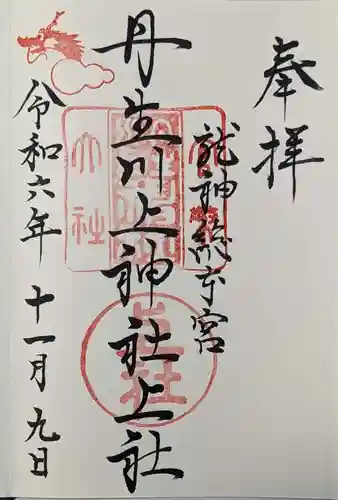 奉拝
龍神総本宮
丹生川上神社上社
令和六年 十一月 九日
大社
上社